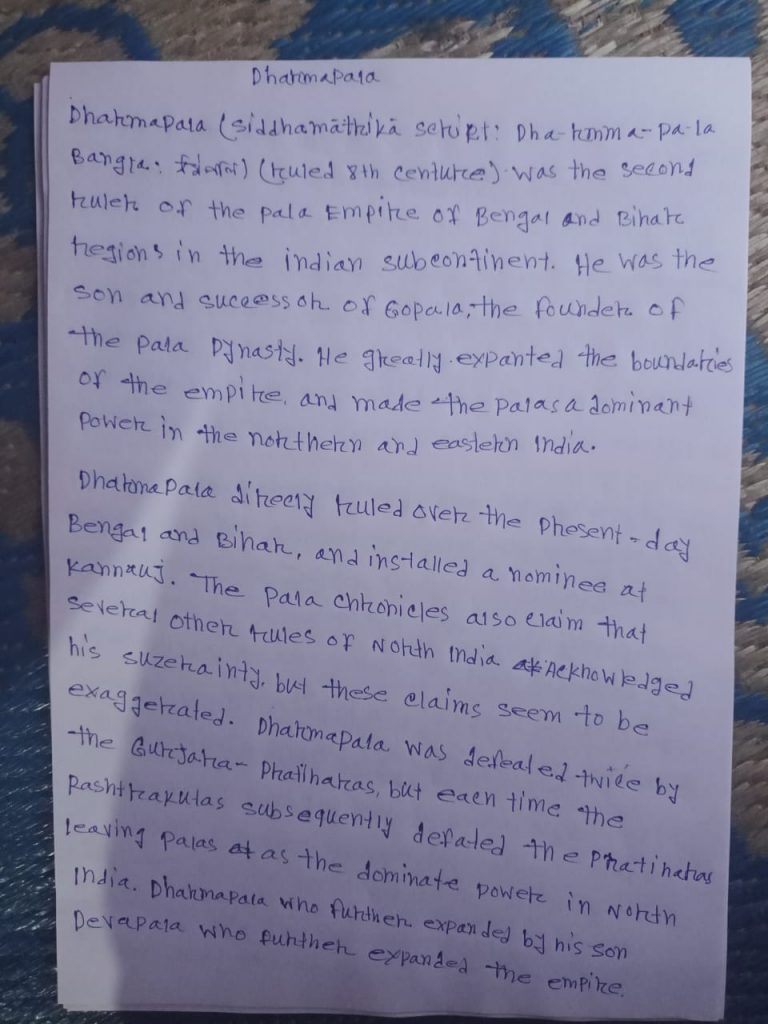 Dharmapala
Dharmapala (siddhamātrikā script: Dha-rmma-pa-la
Bangla: ধর্মপাল) (ruled 8th centure) was the second
ruler of the pala Empire of Bengal and Bihar
regions in the indian subcontinent. He was the
son and successor of Gopala, the founder of
the pala Dynasty. He greatly expanted the boundaries
of the empire, and made the palas a dominant
power in the northern and eastern India.
Dharmapala direcly ruled over the present-day
Bengal and Bihar, and installed a nominee at
Kannauj. The pala chronicles also claim that
several other rules of North India Acknowledged
his suzerainty, but these claims seem to be
exaggerated. Dharmapala was defealed twice by
the Gurjara- Pratiharas, but each time the
Rashtrakutas subsequently defated the Pratiharas
leaving palas as the dominate power in North
India. Dharmapala who further expanded by his son
Devapala who further expanded the empire.